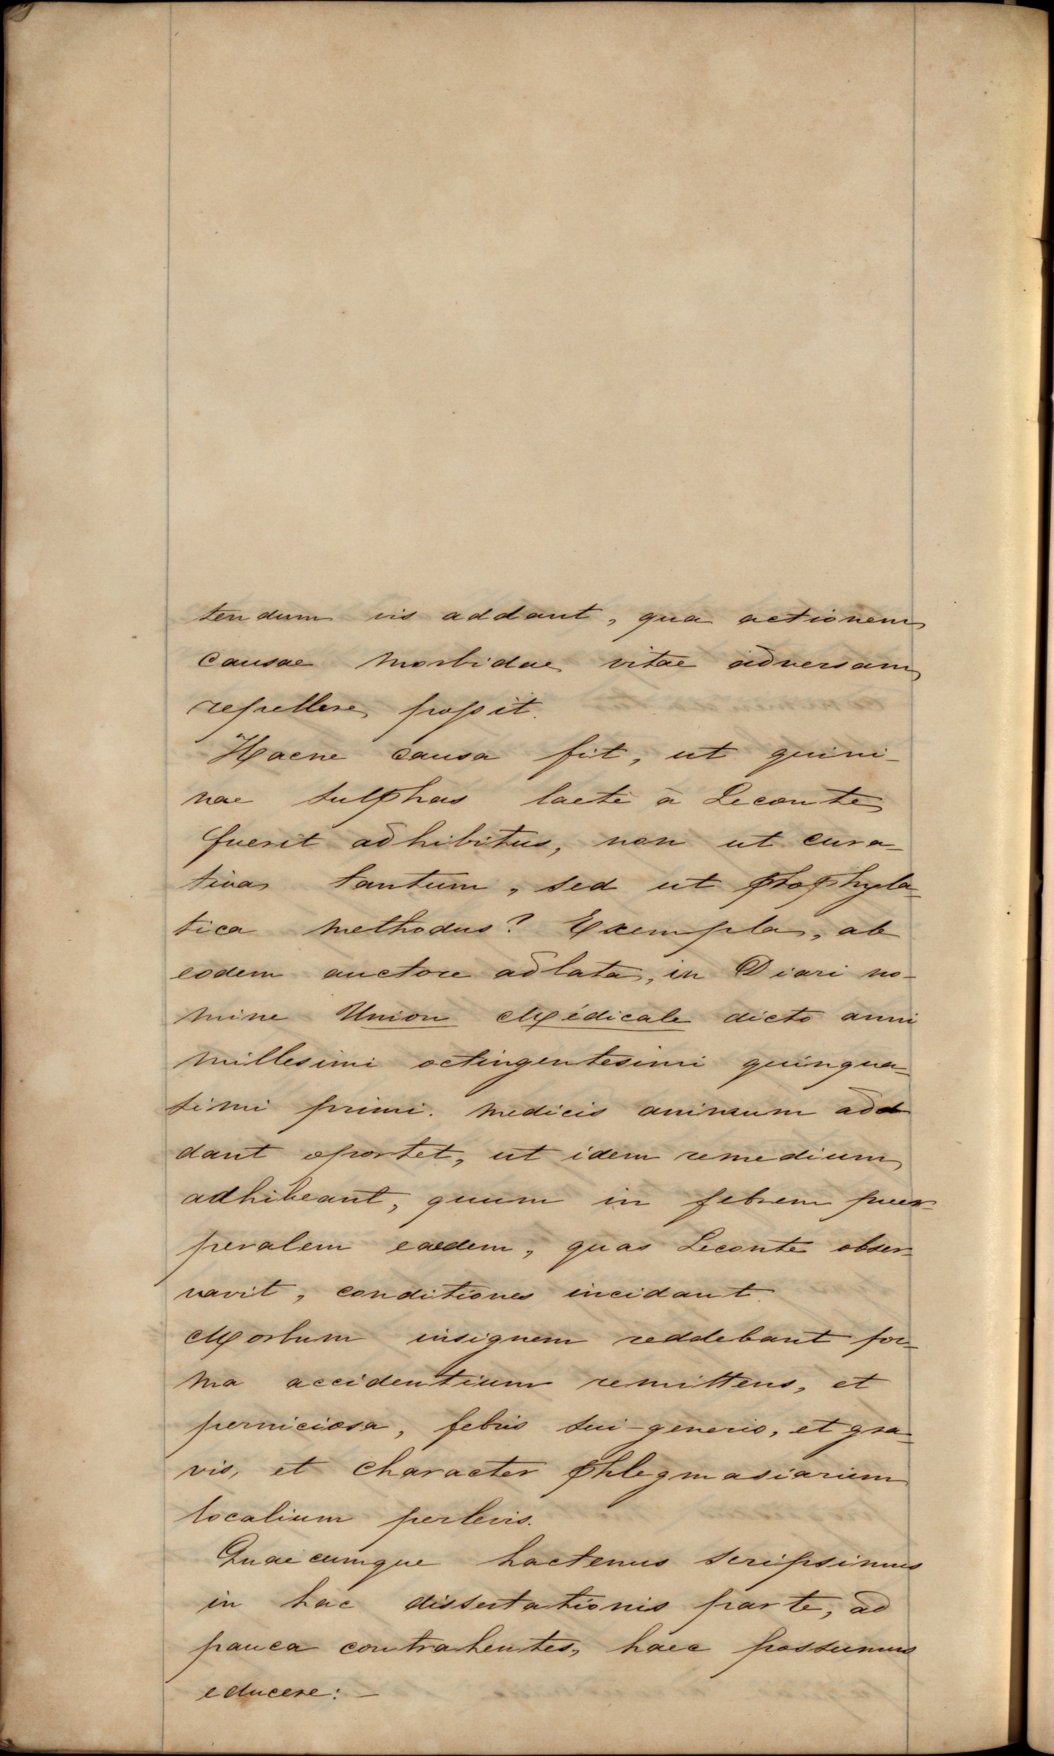 tendum vis addant, qua actionem
causae morbidae vitae adversam
repellere possit.
Hacne causa fit, ut quini-
nae sulphas laete à Leconte
fuerit adhibitus, non ut cura-
tiva tantum, sed ut prophyla-
tica methodus? Exempla, ab
eodem auctore adlata, in Diari no-
mine Union Médicale dicto anni
millesimi octingentesimi quinqua-
simi primi. medicis animum ad
dant oportet, ut idem remedium
adhibeant, quum in febrem puer-
peralem eaedem, quas Leconte obser-
vavit, conditiones incidant.
Morbum insignem reddebant for-
ma accidentium remittens, et
perniciosa, febris sui-generis, et gra-
vis, et character phlegmasiarum
localium perlevis.
Quaecumque hactenus scripsimus
in hac dissertationis parte, ad
pauca contrahentes, haec possumus
educere: -